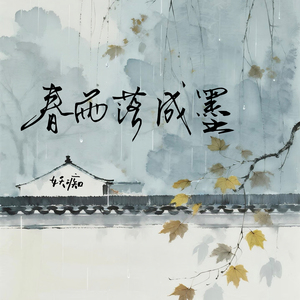 春雨落成墨
妖痴